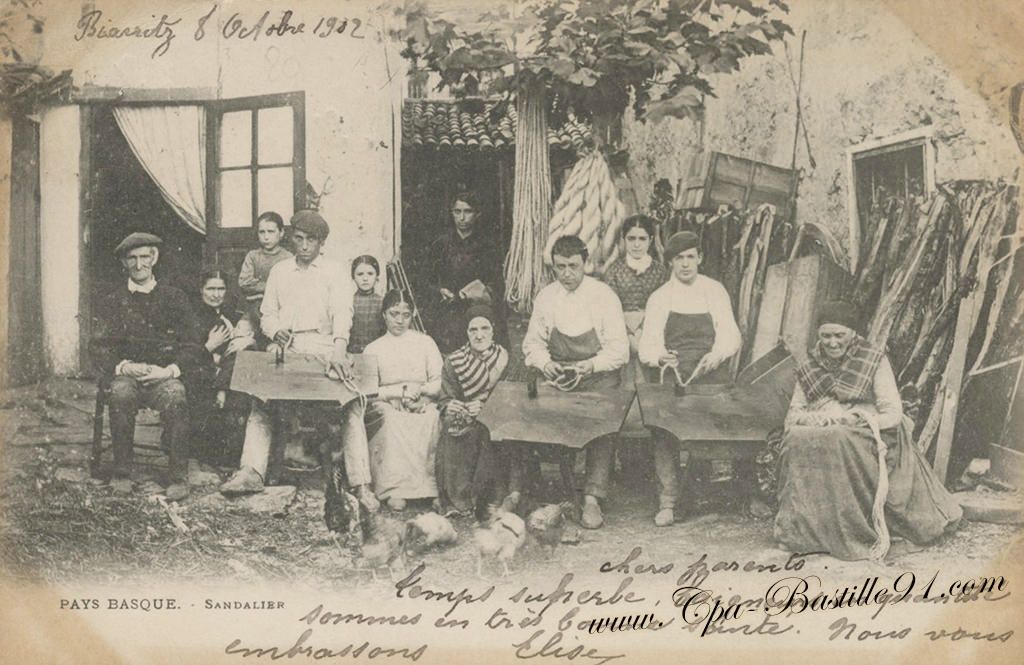 Biarritz 8 Octobre 1902
chers parents.
Temps superbe,
PAYS BASQUE. - SANDALIER
www.Cpa-Bastille91.com
sommes en très bonne santé. Nous vous
embrassons Elise